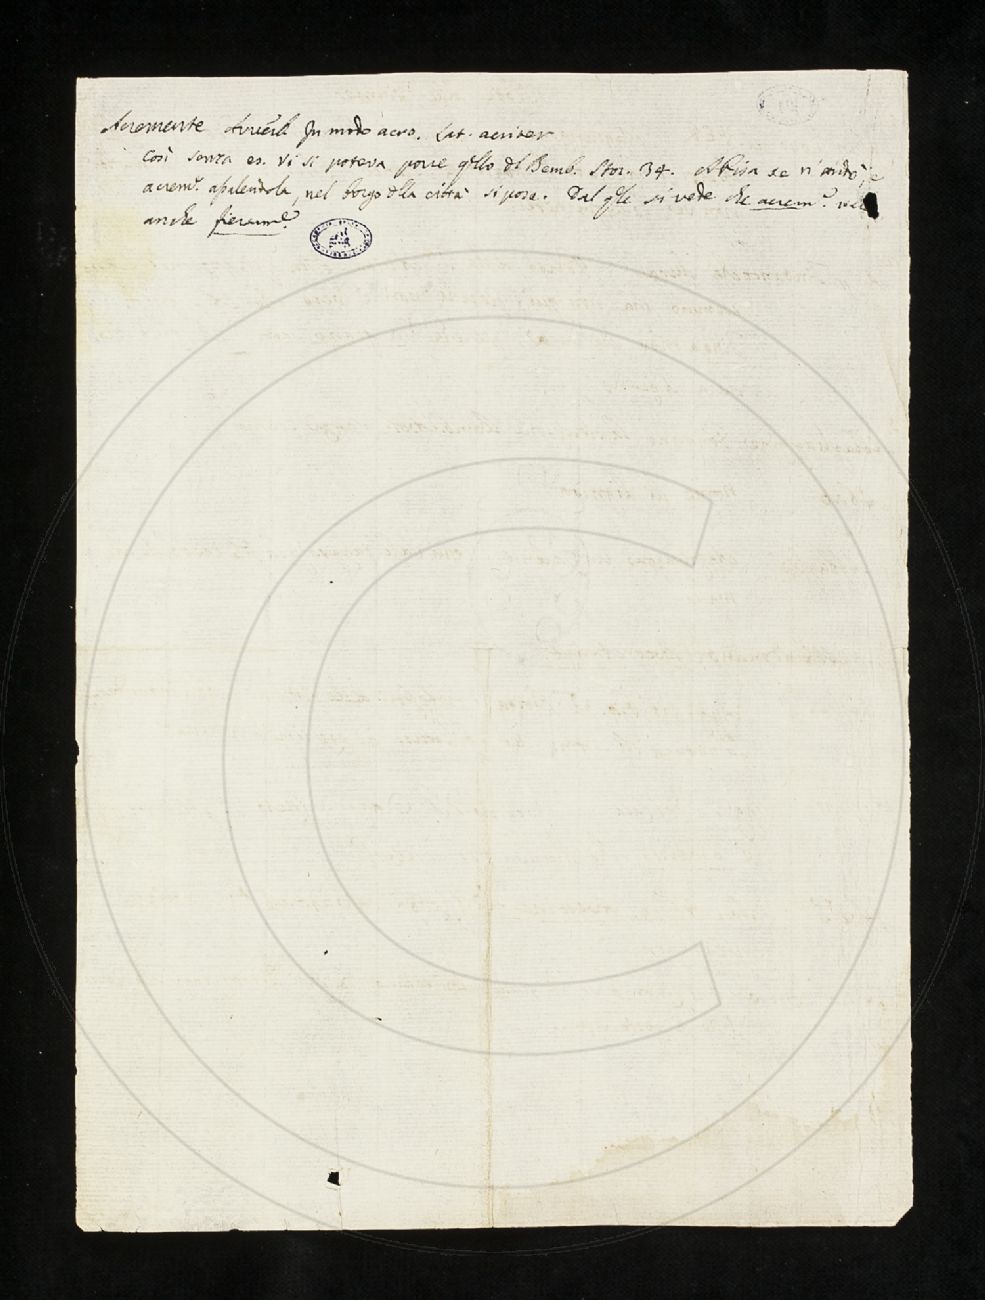 Acremente Avverb In modo acro. Lat. acriter
Così senza es. Vi si poteva porre qllo dl Bemb. Stor. 34. A Pisa se n'andò, e
acrem.e assalendola, nel borgo dlla città si pose. Dal qle si vede che acrem.e
anche fieram.e